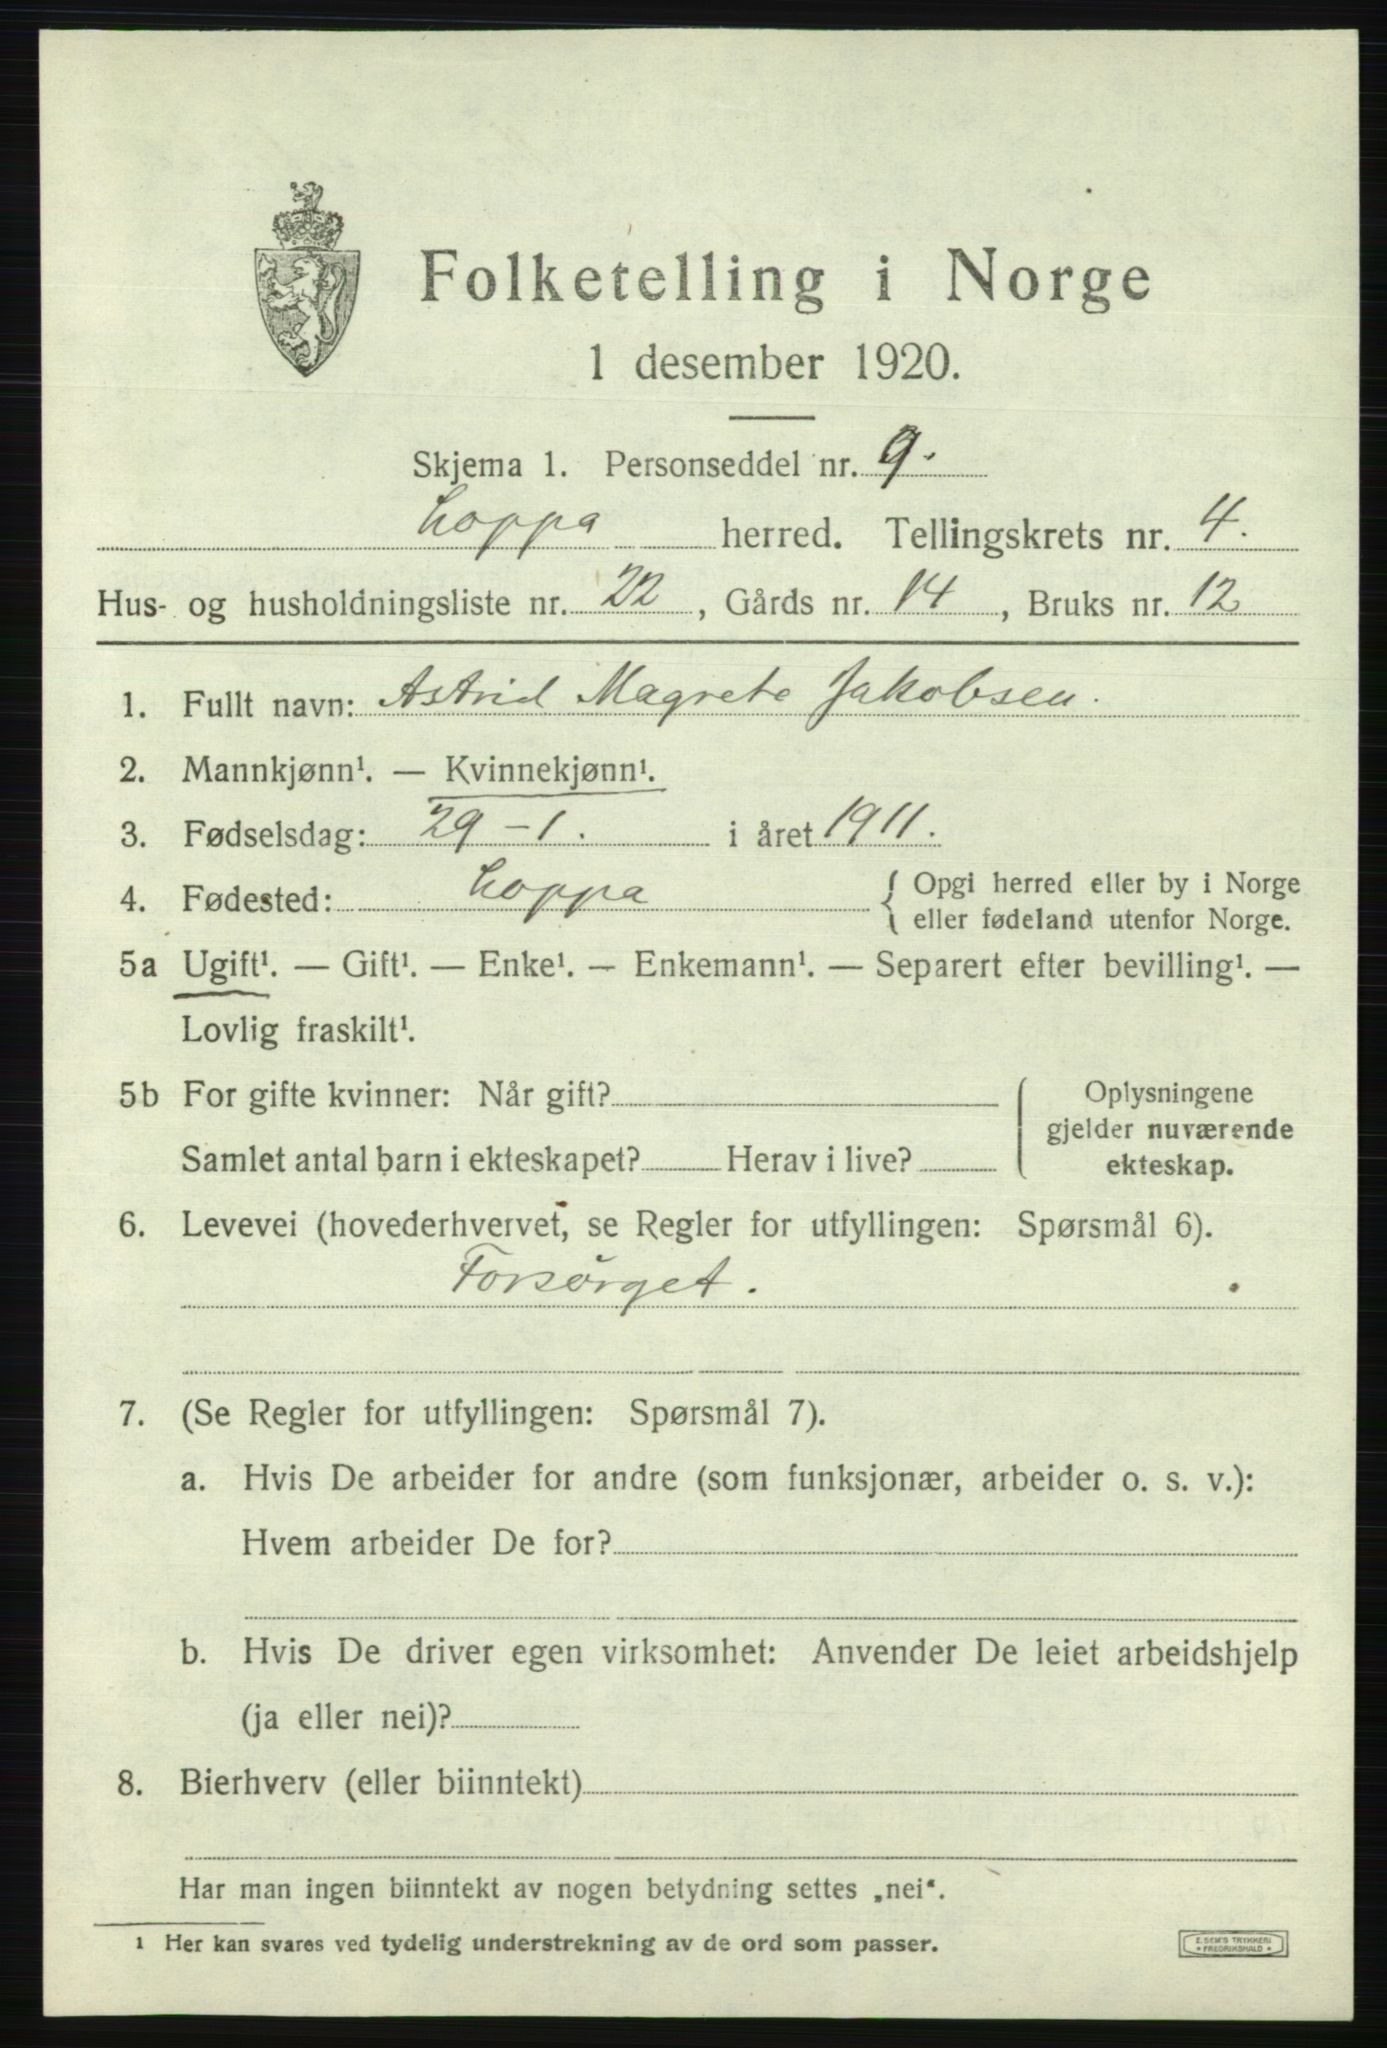 Folketelling i Norge
1 desember 1920.
Skjema 1. Personseddel nr. 9.
Loppa herred. Tellingskrets nr. 4.
Hus- og husholdningsliste nr. 22, Gårds nr. 14, Bruks nr. 12
1. Fullt navn: Astrid Magrete Jakobsen.
2. Mannkjønn¹. — Kvinnekjønn¹.
3. Fødselsdag: 29-1. i året 1911.
4. Fødested: Loppa { Opgi herred eller by i Norge
eller fødeland utenfor Norge.
5a Ugift¹. — Gift¹. — Enke¹. — Enkemann¹. — Separert efter bevilling¹. —
Lovlig fraskilt¹.
5b For gifte kvinner: Når gift? Oplysningene
gjelder nuværende
Samlet antal barn i ekteskapet? Herav i live? ekteskap.
6. Levevei (hovederhvervet, se Regler for utfyllingen: Spørsmål 6).
Forsørget.
7. (Se Regler for utfyllingen: Spørsmål 7).
a. Hvis De arbeider for andre (som funksjonær, arbeider o. s. v.):
Hvem arbeider De for?
b. Hvis De driver egen virksomhet: Anvender De leiet arbeidshjelp
(ja eller nei)?
8. Bierhverv (eller biinntekt)
Har man ingen biinntekt av nogen betydning settes „nei“.
1 Her kan svares ved tydelig understrekning av de ord som passer.
E. SEM'S TRYKKERI
* FREDRIKSHALD *